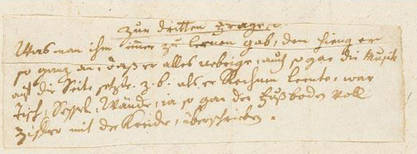 zur dritten Frage.
Was man ihm immer zu lernen gab, dem hieng er
so ganz an, daß er alles uebrige, auch so gar die Musik
auf die Seite setzte. z. b. als er Rechnen lernte, war
Tisch, Sessel, Wände, ja so gar der Fußboden voll
Ziffern mit der Kreide überschrieben.